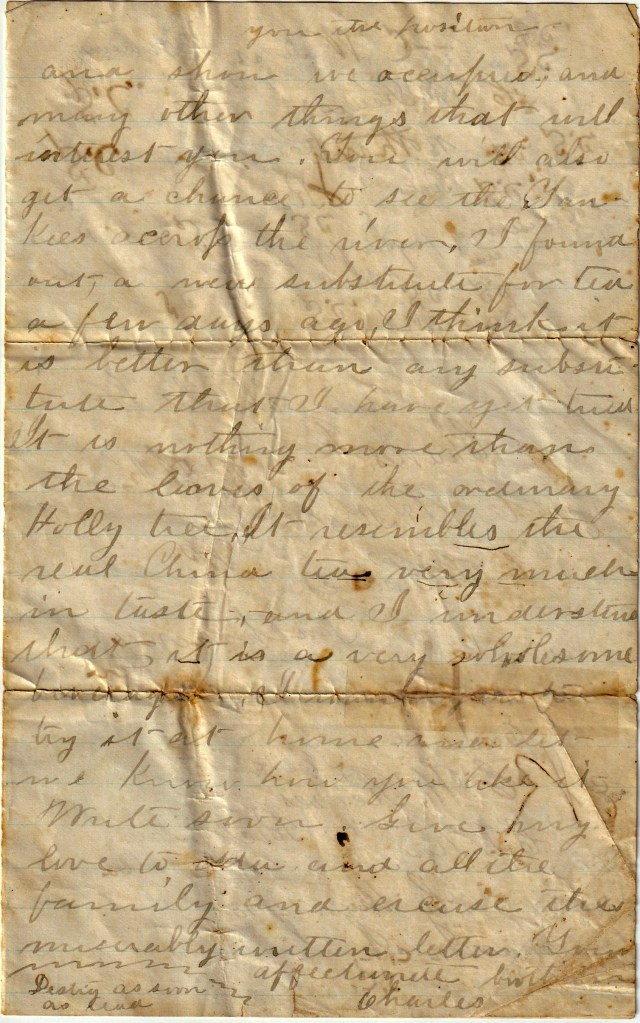 you the position
and show we occupied, and
many other things that will
interest you. You will also
get a chance to see the Yan-
kees accross the river. I found
out, a new substitute for tea
a few days ago, I think it
is better than any substi-
tute that I have yet tried
It is nothing more than
the leaves of the ordinary
Holly tree. It resembles the
real China tea very much
in taste, and I understand
that it is a very wholesome
try it at home and let
me know how you like it
Write soon Give my
love to and all the
family and excuse this
miserably written letter. Your
affectionate brother
Charles
Destroy as soon
as read